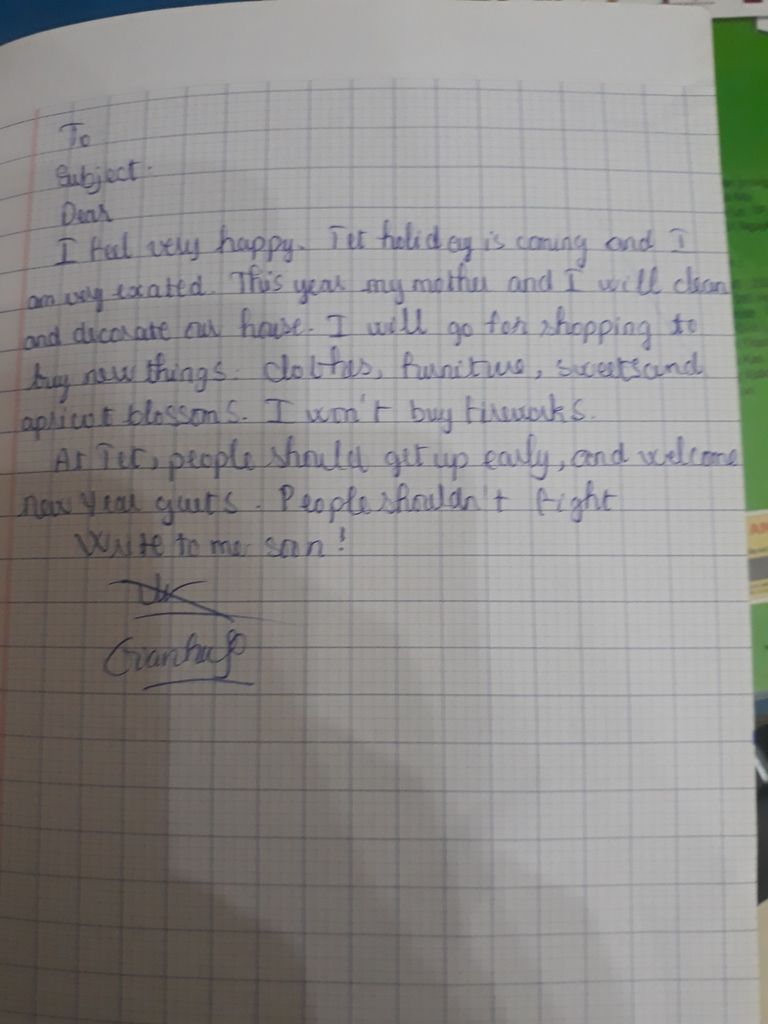 To
Subject:
Dear
I feel very happy. Tet holiday is coming and I
am very excated. This year my mother and I will clean
and decorate our house. I will go for shopping to
buy new things: clothes, furniture, sweets and
apricot blossoms. I won't buy fireworks.
At Tet, people should get up early, and welcome
new year guets. People shouldn't fight
Write to me soon!